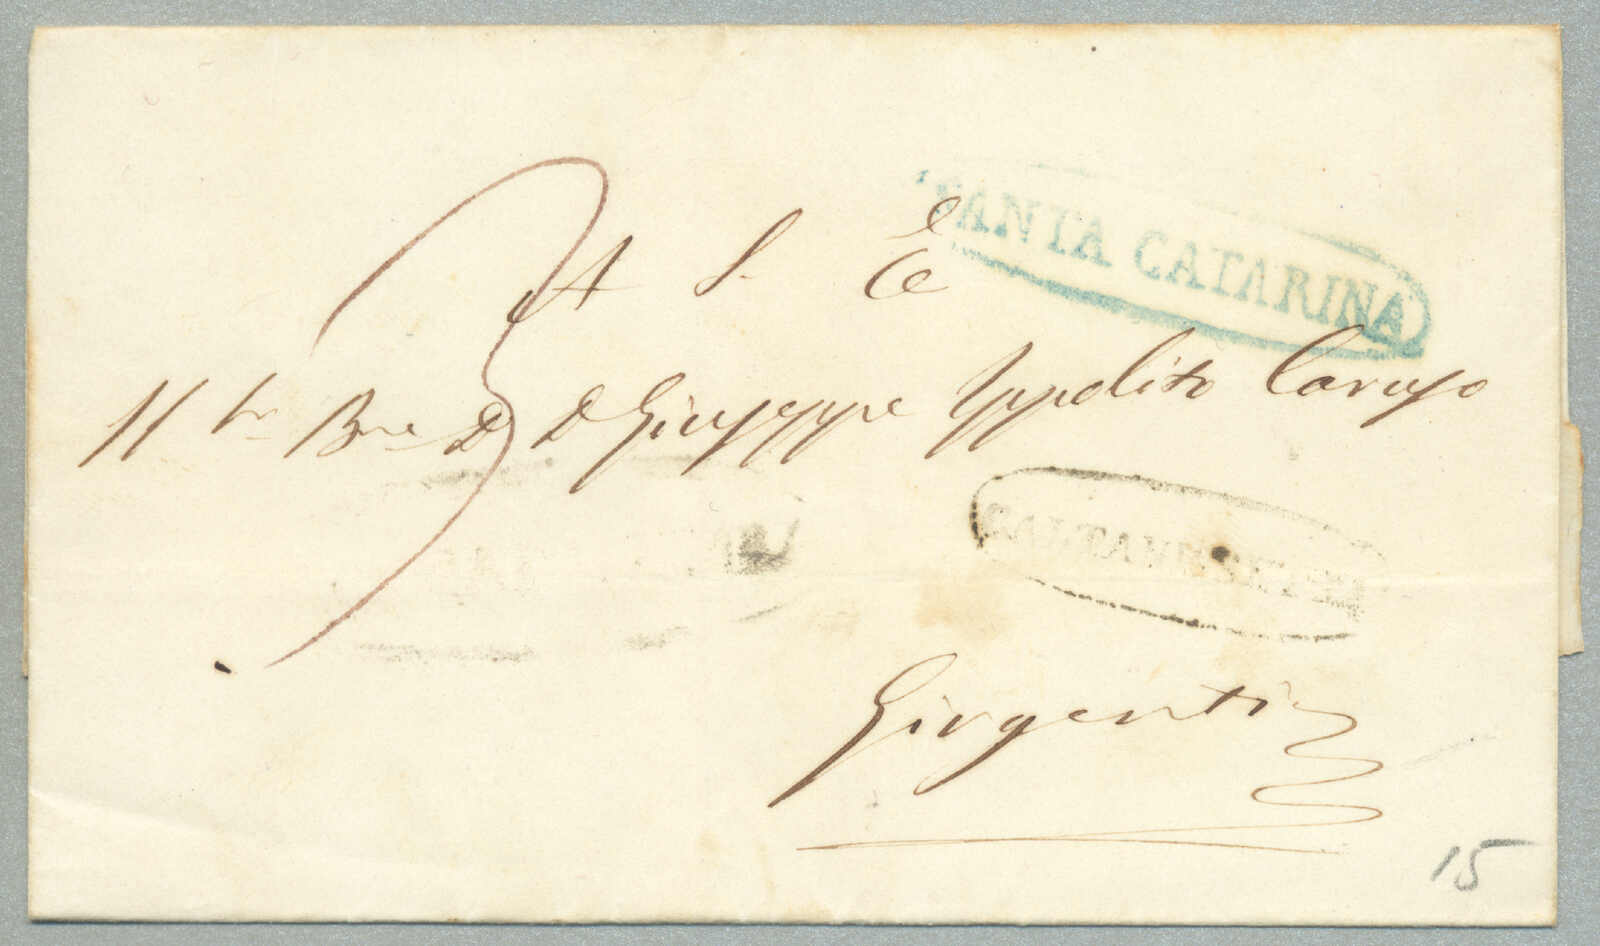 SANTA CATARINA
A S. E.
Il Sr Bne D. D. Giuseppe Ippolito Caruso
CALTANISSETTA
Girgenti
15